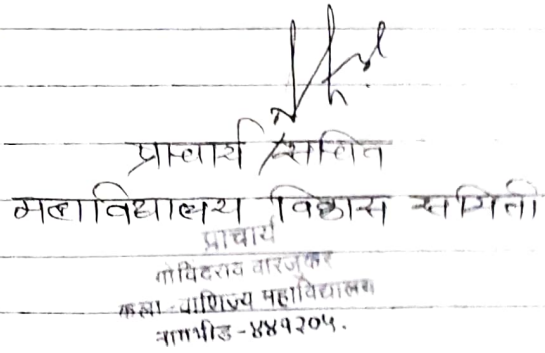 प्राचार्य /सचिव
महाविद्यालय विकास समिती
प्राचार्य
गोविंदराव वारजुकर
कला - वाणिज्य महाविद्यालय
नागभीड - ४४१२०५.